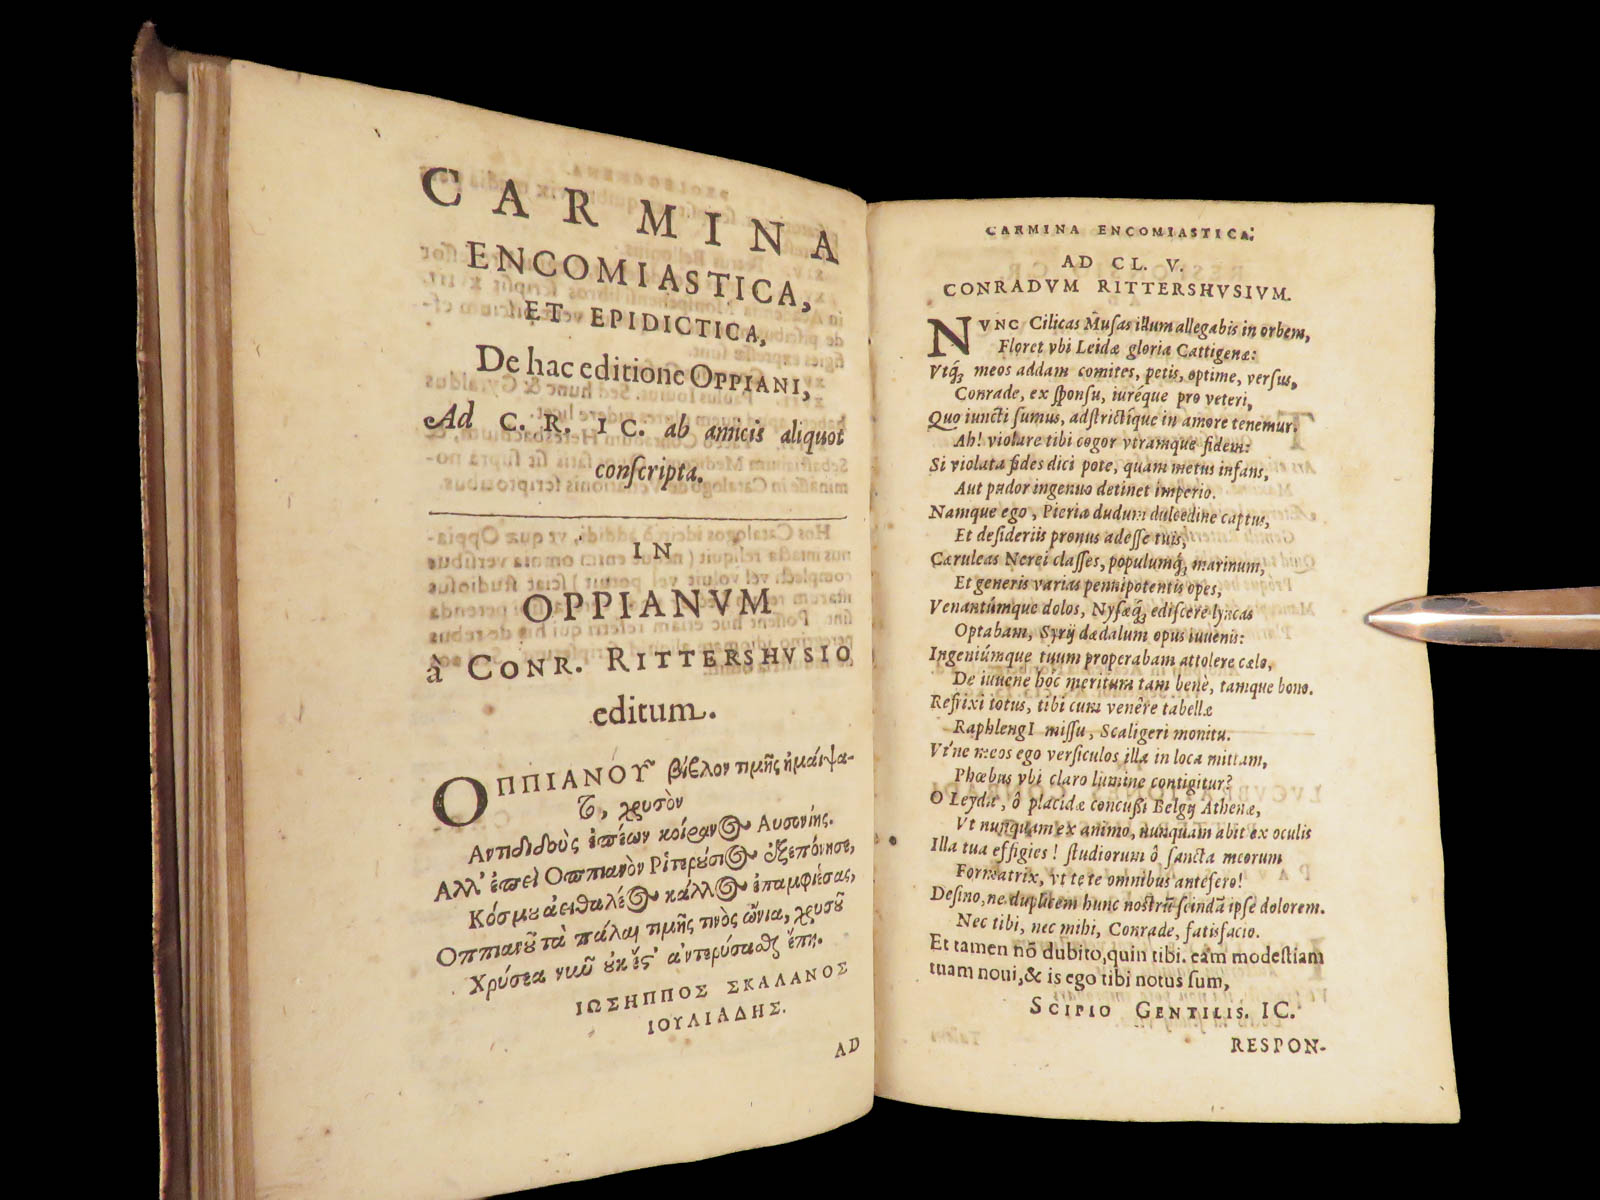 CARMINA
ENCOMIASTICA,
ET EPIDICTICA,
De hac editione OPPIANI,
Ad C. R. IC. ab amicis aliquot
conſcripta.
IN
OPPIANVM
à CONR. RITTERSHVSIO
editum.
ΟΠΠΙΑΝΟΥ͂ βίβλον τιμῆς ἠμείψα-
το, χρυσὸν
Αντιδιδοὺς ἐπέων κοίρανος Αυσονίης.
Αλλ' ἐπεὶ Οππιανὸν Ριτερούσιος ἐξεπόνησε,
Κόσμου ἀειθαλέος κάλλος ἐπαμφιέσας,
Οππιανοῦ τὰ πάλαι τιμῆς τινὸς ὤνια, χρυσοῦ
Χρύσεα νιῦ οὐκ ἔςʼ ἀντερύσαςθζ ἔπη.
ΙΩΣΗΠΠΟΣ ΣΚΑΛΑΝΟΣ
ΙΟΥΛΙΑΔΗΣ.
AD
CARMINA ENCOMIASTICA.
AD CL. V.
CONRADVM RITTERSHVSIVM.
NVNC Cilicas Muſas illum allegabis in orbem,
Floret vbi Leidæ gloria Cattigenæ:
Vtq́; meos addam comites, petis, optime, verſus,
Conrade, ex ſponſu, iuréque pro veteri,
Quo iuncti ſumus, adſtrictíque in amore tenemur.
Ah! violare tibi cogor vtramque fidem:
Si violata fides dici pote, quam metus infans,
Aut pudor ingenuo detinet imperio.
Namque ego, Pieria dudum dulcedine captus,
Et deſideriis pronus adeſſe tuis,
Cæruleas Nerei claſſes, populumq́; marinum,
Et generis varias pennipotentis opes,
Venantúmque dolos, Nyſæq́; ediſcere lyncas
Optabam, Syrij dædalum opus iuuenis:
Ingeniúmque tuum properabam attolere cælo,
De iuuene hoc meritura tam bene, tamque bono.
Refrixi totus, tibi cum venêre tabellæ
RaphlengI miſſu, Scaligeri monitu.
Vt'ne meos ego verſiculos illæ in loca mittam,
Phœbus vbi claro lumine contigitur?
O Leyda, ô placidæ concußi Belgij Athenæ,
Vt nunquam ex animo, nunquam abit ex oculis
Illa tua effigies! ſtudiorum ô ſancta meorum
Formatrix, vt te te omnibus antefero!
Deſino, ne duplicem hunc noſtrū ſcindā ipſe dolorem.
Nec tibi, nec mihi, Conrade, ſatisfacio.
Et tamen nō dubito, quin tibi. eam modeſtiam
tuam noui, & is ego tibi notus ſum,
SCIPIO GENTILIS. IC.
RESPON-